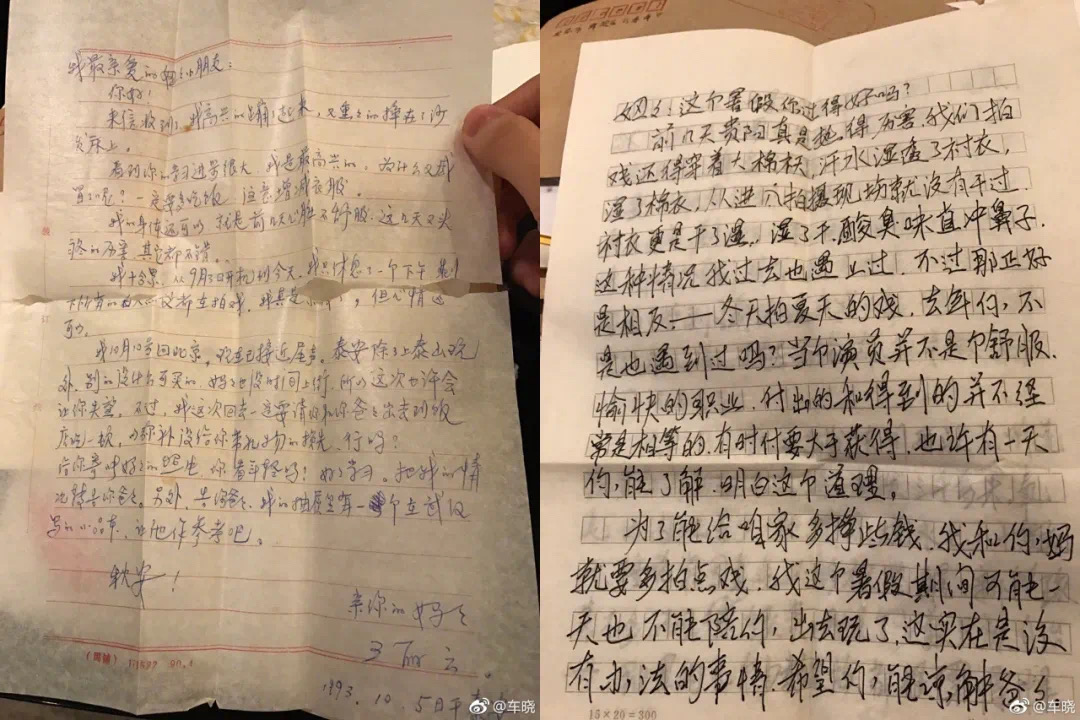 我最亲爱的小朋友：
你好！
来信收到，我高兴的蹦了起来，又重重的摔在了沙
发床上。
看到你的学习进步很大，我是最高兴的，为什么又感
冒了呢？一定要多吃饭，注意增减衣服。
我的身体还可以，就是前几天心脏不舒服，这几天又头
疼的厉害，其它都不错。
我十分累，从9月3日开机到今天，我只休息了一个下午，
但心情还
可以。
我10月12号回北京，现在已接近尾声。泰安除了上泰山玩
外，别的没什么可买的，妈妈也没时间上街，所以这次也许会
让你失望。不过，我这次回去一定要请你和你爸爸出去到饭
店吃一顿，以弥补没给你带礼物的损失，行吗？
给你寄味好好的照片，你看年轻吗？好好学习。把我的情
况转告你爸爸。另外，告诉爸爸，我的抽屉里有一个在武汉
写的小品本，让他作参考吧。
秋安！
亲你的妈妈
王丽云
1993.10.5日于泰安
妞妞：这个暑假你过得好吗？
前几天贵阳真是热得厉害，我们拍
戏还得穿着大棉袄，汗水湿透了衬衣，
湿了棉衣，从进入拍摄现场就没有干过，
衬衣更是干了湿，湿了干，酸臭味直冲鼻子，
这种情况我过去也遇上过，不过那正好
是相反，——冬天拍夏天的戏，去年你不
是也遇到过吗？当个演员并不是个舒服、
愉快的职业，付出的和得到的并不经
常是相等的，有时付要大于获得，也许有一天
你能了解、明白这个道理。
为了能给咱家多挣些钱，我和你妈
就要多拍点戏，我这个暑假期间可能一
天也不能陪你出去玩了，这实在是没
有办法的事情，希望你能谅解爸爸。
15×20=300
@车晓
@车晓